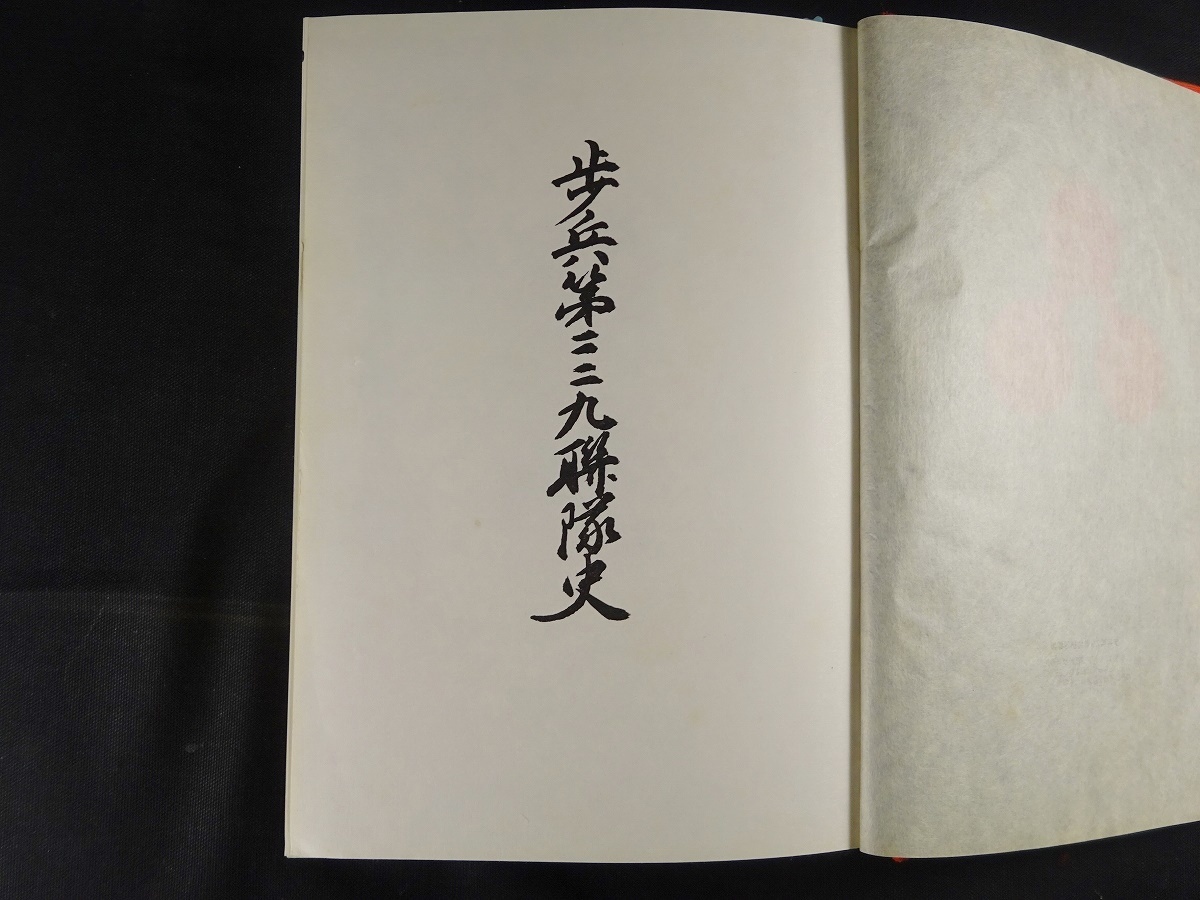 歩兵第二二九聯隊史